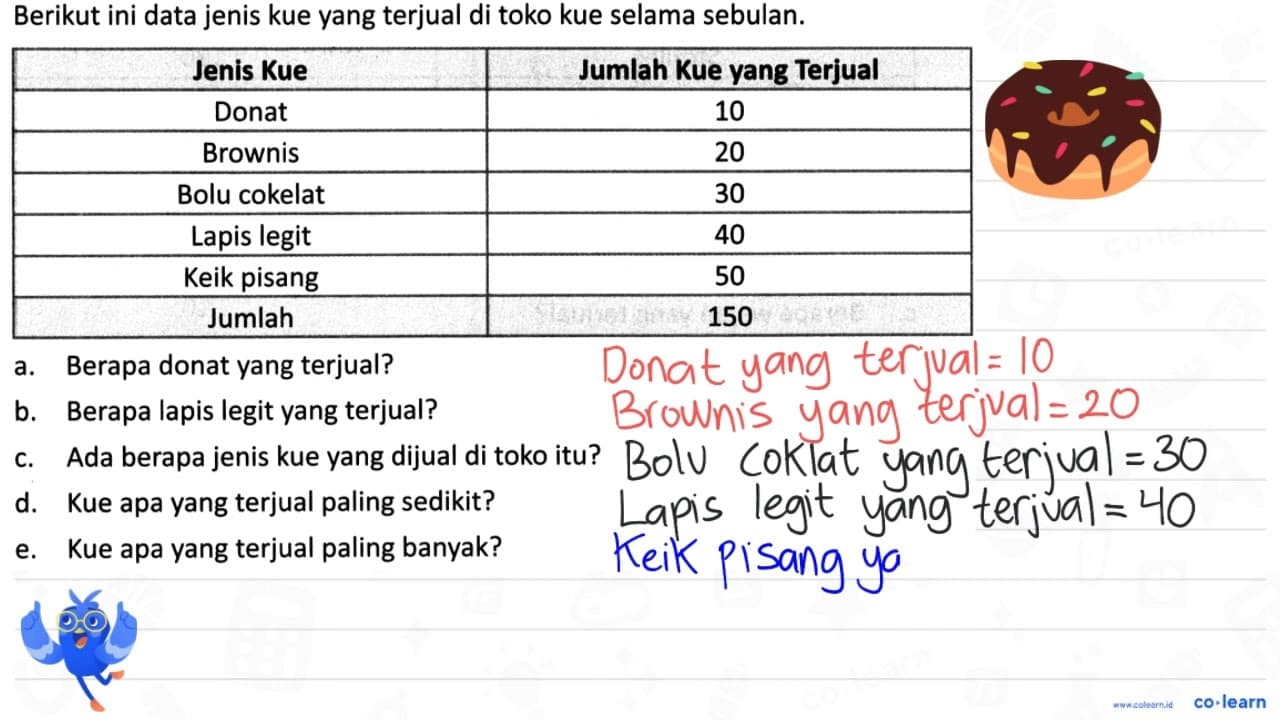 Berikut ini data jenis kue yang terjual di toko kue selama sebulan.
Jenis Kue Jumlah Kue yang Terjual
Donat 10
Brownis 20
Bolu cokelat 30
Lapis legit 40
Keik pisang 50
Jumlah 150
a. Berapa donat yang terjual?
b. Berapa lapis legit yang terjual?
c. Ada berapa jenis kue yang dijual di toko itu?
d. Kue apa yang terjual paling sedikit?
e. Kue apa yang terjual paling banyak?
Donat yang terjual = 10
Brownis yang terjual = 20
Bolu coklat yang terjual = 30
Lapis legit yang terjual = 40
Keik pisang ya
www.colearn.id co·learn